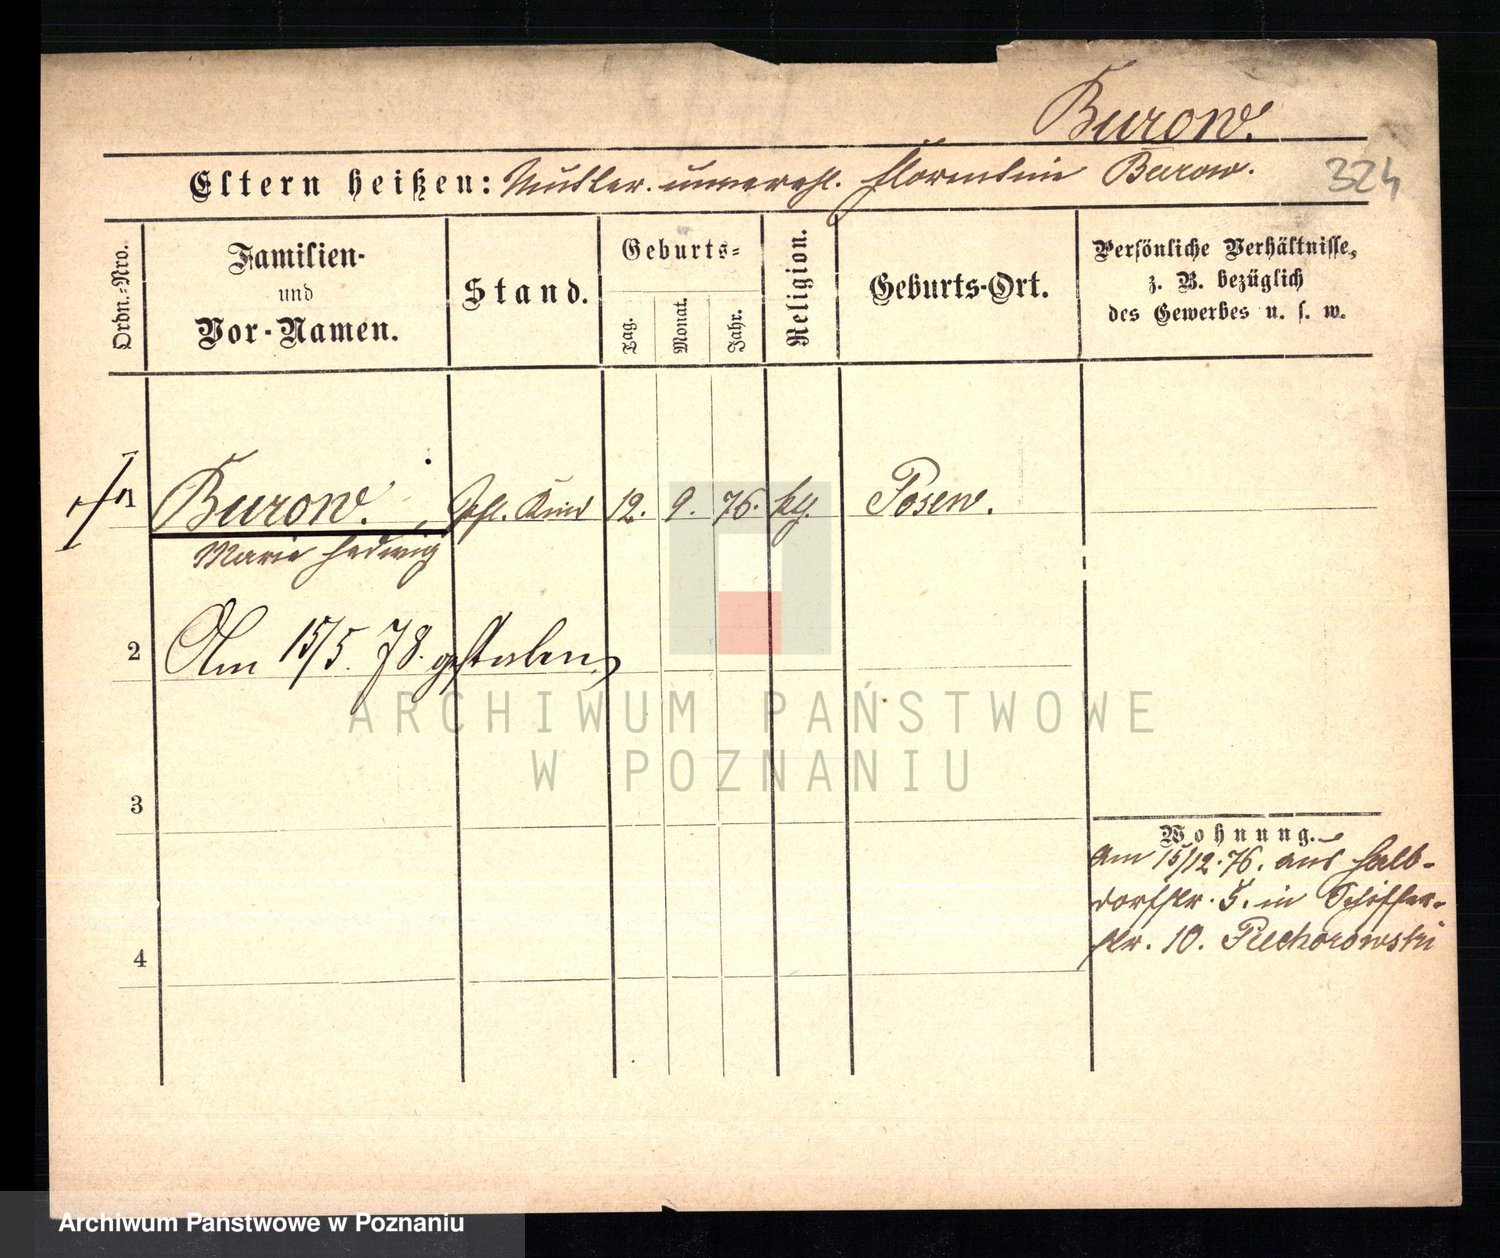 Burow.
324
Eltern heißen: Mutter. unverehl. Florentine Burow.
Ordn.-Nro.
Familien-
und
Vor-Namen.
Stand.
Geburts-
Tag.
Monat.
Jahr.
Religion.
Geburts-Ort.
Persönliche Verhältnisse,
z. B. bezüglich
des Gewerbes u. s. w.
1 Burow. Kind 12. 9. 76. Posen.
Marie Hedwig
2 Am 15/5. 78. gestorben
3
4
Wohnung.
Am 15/12. 76. aus Halb-
dorfstr. 5. in Schiffer-
str. 10. Piechorowski
ARCHIWUM PAŃSTWOWE
W POZNANIU
Archiwum Państwowe w Poznaniu